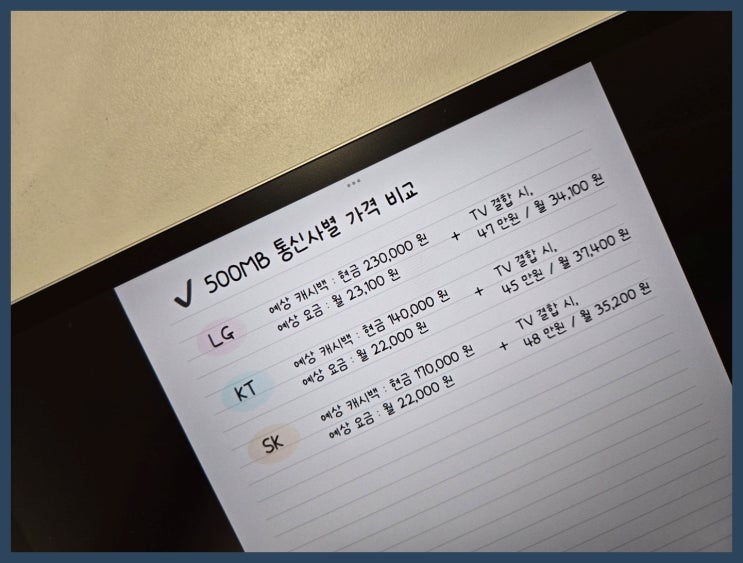 ✓ 500MB 통신사별 가격 비교
LG
예상 캐시백 : 현금 230,000 원
예상 요금 : 월 23,100 원
+
TV 결합 시,
47 만원 / 월 34,100 원
KT
예상 캐시백 : 현금 140,000 원
예상 요금 : 월 22,000 원
+
TV 결합 시,
45 만원 / 월 37,400 원
SK
예상 캐시백 : 현금 170,000 원
예상 요금 : 월 22,000 원
+
TV 결합 시,
48 만원 / 월 35,200 원